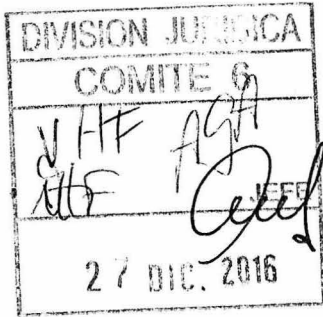 DIVISION JURIDICA
COMITE 6
VHF AGA
MF
JEFE
27 DIC. 2016